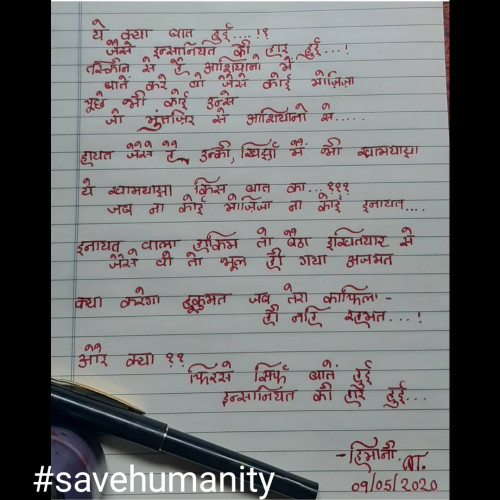 ये क्या बात हुई....!?
जैसे इन्सानियत की हार हुई...!
तस्कीन से है आशियानो में
बातें करे वो जैसे कोई मोजिजा
पुछे भी कोई उन्से
जो मुंतज़िर से आशियानो से.....
हायत जैसे है, उनकी, खिज़ाँ में भी खामयाज़ा
ये खामयाज़ा किस बात का...???
जब ना कोई मोजिजा ना कोई इनायत....
इनायत वाला मुकिम तो बैठा इख्तियार से
जैसे वो तो भूल ही गया अजमत
क्या करेगा हुकुमत जब तेरा काफिला -
ही नहि रहमत...!
और क्या ??
फिरसे सिर्फ बातें हुई
इन्सानियत की हार हुई...
-हिमानी.
09/05/2020
#savehumanity